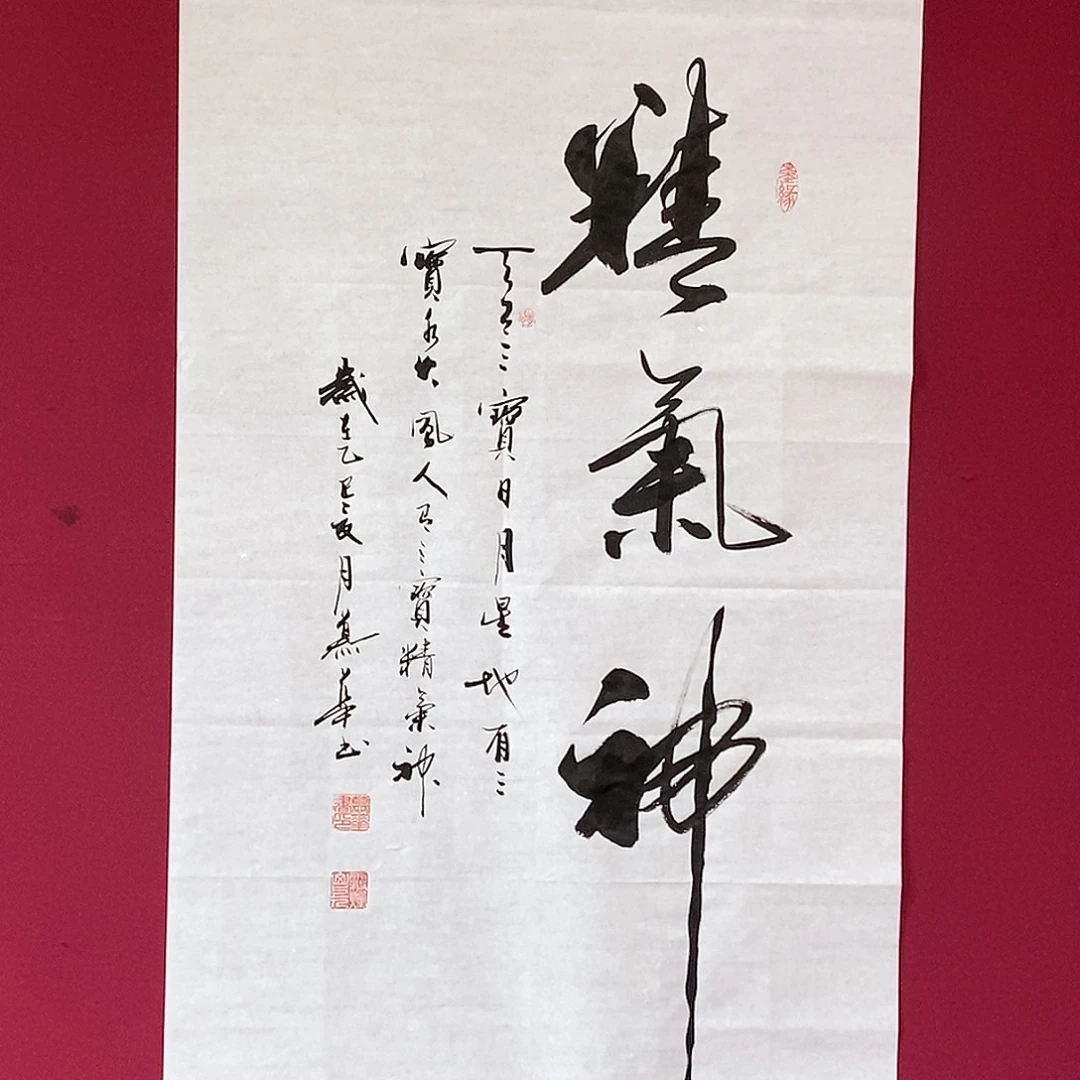 墨緣
精氣神
天有三寶日月星地有三
寶水火風人有三寶精氣神
歲在乙巳夏月慕華书